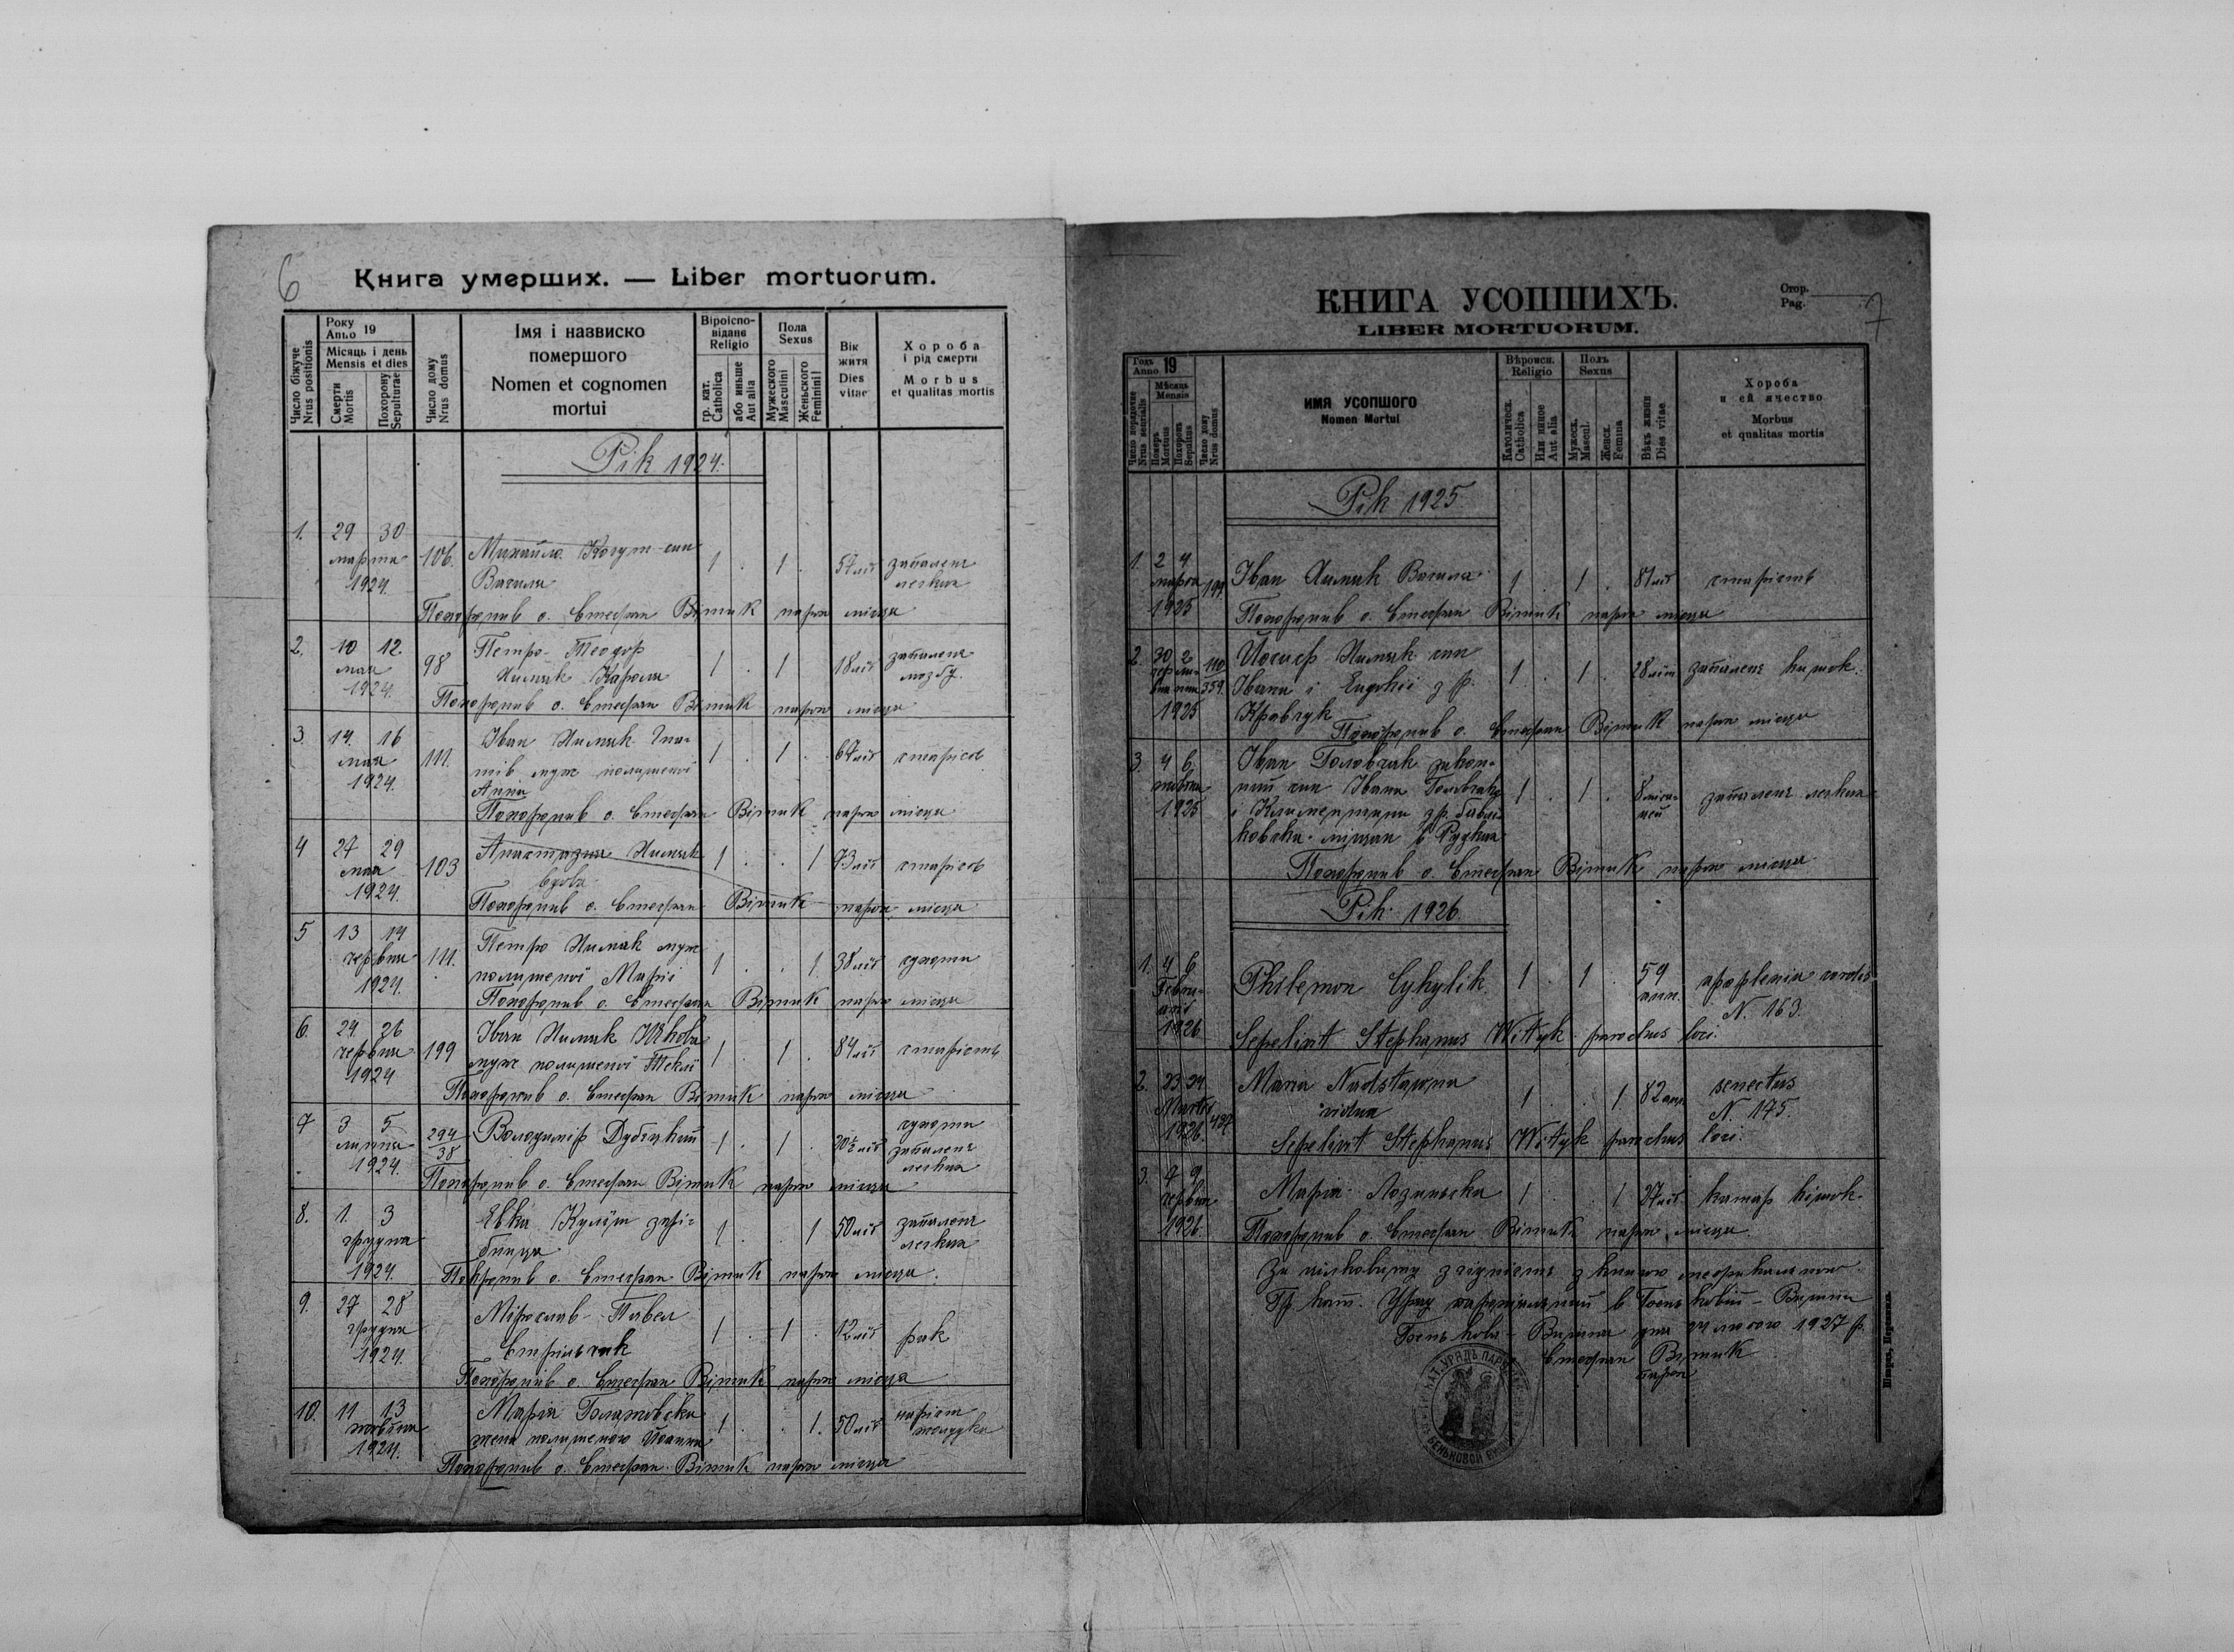 6
Книга умерших. — Liber mortuorum.
Число біжуче
Nrus positionis
Року
Anno 19
Місяць і день
Mensis et dies
Смерти
Mortis
Похорону
Sepulturae
Число дому
Nrus domus
Імя і назвиско
помершого
Nomen et cognomen
mortui
Віроіспо-
відане
Religio
гр. кат.
Catholica
або иньше
Aut alia
Пола
Sexus
Мужеского
Masculini
Женьского
Feminini
Вік
житя
Dies
vitae
Хороба
і рід смерти
Morbus
et qualitas mortis
Рік 1924.
1. 29 30 марта 1924. 106. Михайло Когут син 1 . 1 . 57 літ запаленє
Василя легких
Похоронив о. Стефан Вітик парох місця
2. 10 12. мая 1924. 98 Петро-Теодор 1 . 1 18 літ запаленє
Химяк Кароля мозбу.
Похоронив о. Стефан Вітик парох місця
3. 14. 16 мая 1924. 111. Іван Химяк Гна- 1 . 1 . 67 літ старість
тів муж полишеної
Анни
Похоронив о. Стефан Вітик парох місця
4 27 29 мая 1924. 103 Анастазия Химяк 1 . . 1 73 літ старість
вдова
Похоронив о. Стефан Вітик парох місця
5 13 14 червня 1924. 111. Петро Химяк муж 1 . . 1. 38 літ сухоти
полишеної Марії
Похоронив о. Стефан Вітик парох місця
6. 24. 26 червня 1924 199 Іван Химяк Якова 1 . 1 . 84 літ старість
муж полишеної Теклі
Похоронив о. Стефан Вітик парох місця
7 3 5 липня 1924. 294/38 Володимір Дубіцкий 1 . 1 . 20½ літ сухоти
запаленє
легких
Похоронив о. Стефан Вітик парох місця
8. 1. 3 грудня 1924. Евка Куліш зарі- 1 . . 1 50 літ запаленє
бниця легких
Похоронив о. Стефан Вітик парох місця.
9. 27 28 грудня 1924. Мірослав-Павел 1 . 1 . 12 літ рак
Стрільчик
Похоронив о. Стефан Вітик парох місця
10. 11 13 1924. Марія 1 . . 1. 50 літ
жена полишеного Йоанна
Похоронив о. Стефан Вітик парох місця
КНИГА УСОПШИХЪ.
LIBER MORTUORUM.
Стор.
Pag.
7
Годъ
Anno 19
Мѣсяць
Mensis
Число порядочне
Nrus seriealis
Померъ
Mortuus
Похорон.
Sepultus
Число дому
Nrus domus
ИМЯ УСОПШОГО
Nomen Mortui
Вѣроисп.
Religio
Католическ.
Catholica
Или инное
Aut. alia
Полъ
Sexus
Мужеск.
Mascul.
Женск.
Femina
Вѣкъ жизни
Dies vitae
Хороба
и ей ячество
Morbus
et qualitas mortis
Рік 1925
1. 2 4 марта 1925 199. Іван Химяк Василя 1 . 1 . 81 літ старість
Похоронив о. Стефан Вітик парох місця
2. 30 2 червня липня 1925 110 359. Йосиф Химяк син 1 . 1 . 28 літ запаленє кишок.
Івана і Евдокії з р.
Кравчук
Похоронив о. Стефан Вітик парох місця
3. 4 6 1925 Іван Головчак закон- 1 . 1 . 8 міся- запаленє легких
ний син Івана Головчака цей
і Климентини
Похоронив о. Стефан Вітик парох місця
Рік 1926.
1. 4 6 Febru- arii 1926 Philemon Cyhylik. 1 . 1 . 59 ann. apoplexia cordis
N. 163.
Sepelivit Stephanus Wityk parochus loci.
2. 23 24 Martii 1926. 437 Maria Nadstawna 1 . . 1. 82 ann. senectus
vidua N. 175.
Sepelivit Stephanus Wityk parochus loci.
3. 7 9 червня 1926. Марія Лозиньска 1 . . 1 27 літ катар кішок.
Похоронив о. Стефан Вітик парох місця
За цілковиту згідність з книгою метрикальною
Гр. кат. Уряд парохіяльний в Беньковій-Вишни
Бенькова-Вишня дня 24 лютого 1927 р.
Стефан Вітик
парох